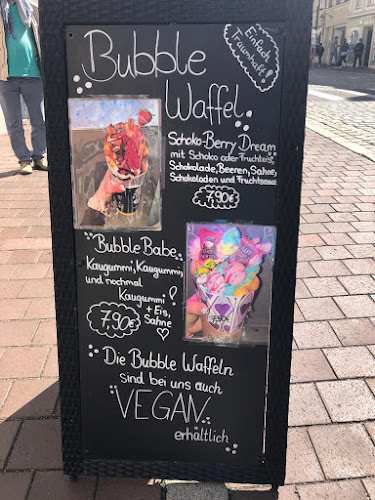 Bubble
Waffel
Einfach
Traumhaft!
Schoko-Berry Dream
mit Schoko oder Fruchteis,
Schokolade, Beeren, Sahne,
Schokoladen und Fruchtsauce
7,90€
Bubble Babe
Kaugummi, Kaugummi,
und nochmal
Kaugummi!
+ Eis,
Sahne
7,90€
7,90€
Die Bubble Waffeln
sind bei uns auch
VEGAN
erhältlich